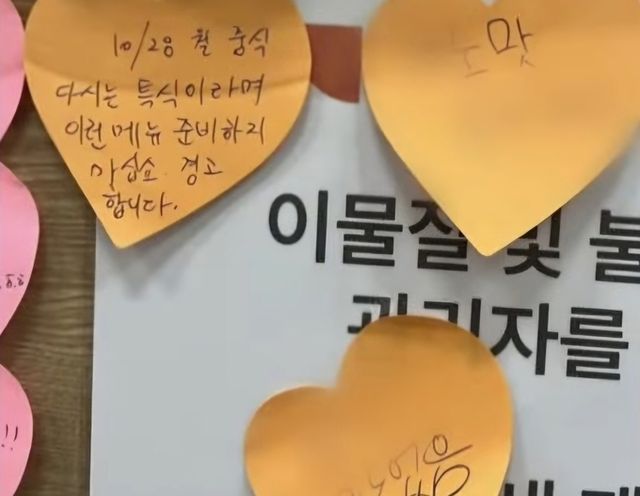 10/28 월 중식
다시는 특식이라며
이런 메뉴 준비하지
마십쇼. 경고
합니다.
노맛
이물질 및 불
관리자를
!!